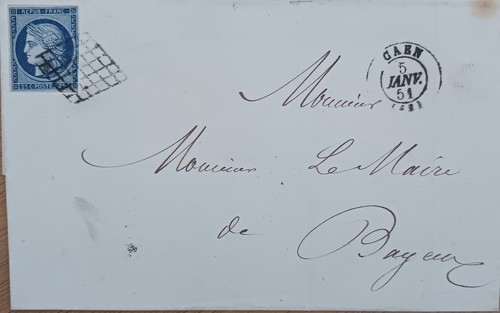 REPUB. FRANC.
25 C. POSTE
CAEN
5
JANV.
51
(13)
Monsieur
Monsieur Le Maire
de Bayeux